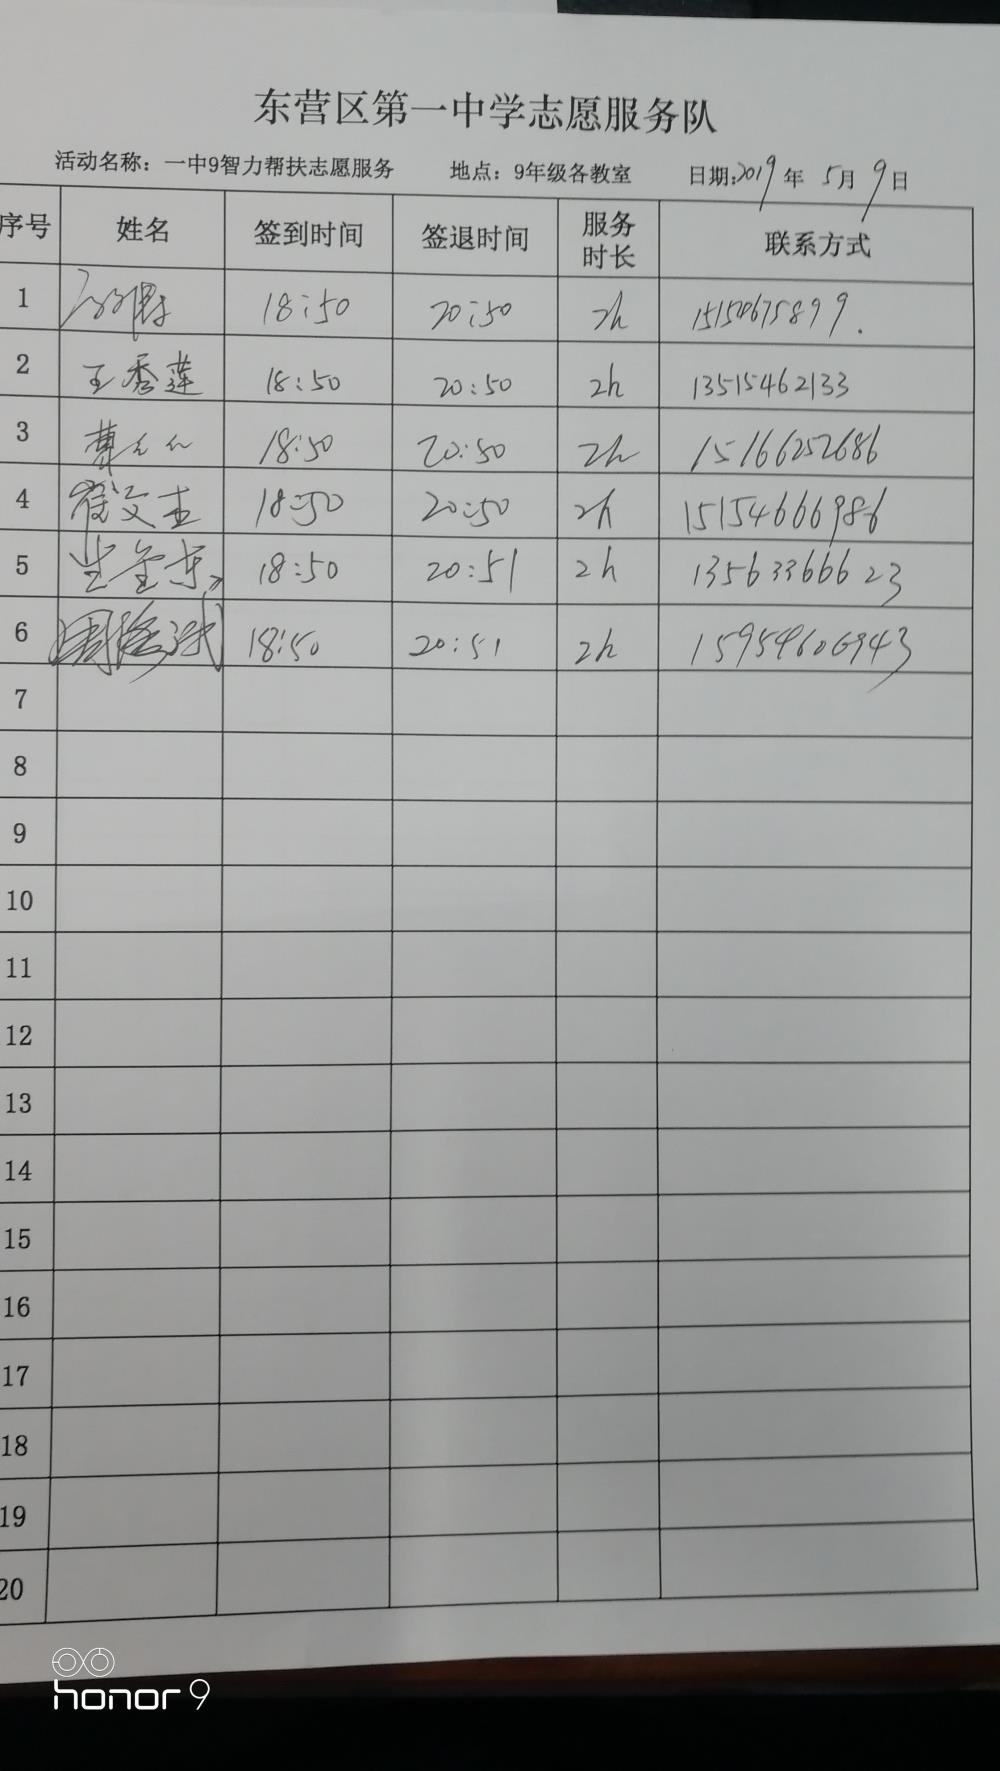 东营区第一中学志愿服务队
活动名称：一中9智力帮扶志愿服务 地点：9年级各教室 日期:2019年 5月 9日
序号 姓名 签到时间 签退时间 服务时长 联系方式
1 18:50 20:50 2h
2 王秀莲 18:50 20:50 2h 13515462133
3 18:50 20:50 2h 15166252686
4 崔文杰 18:50 20:50 2h 15154666986
5 18:50 20:51 2h 13563366623
6 18:50 20:51 2h 15954606943
7
8
9
10
11
12
13
14
15
16
17
18
19
20
honor 9